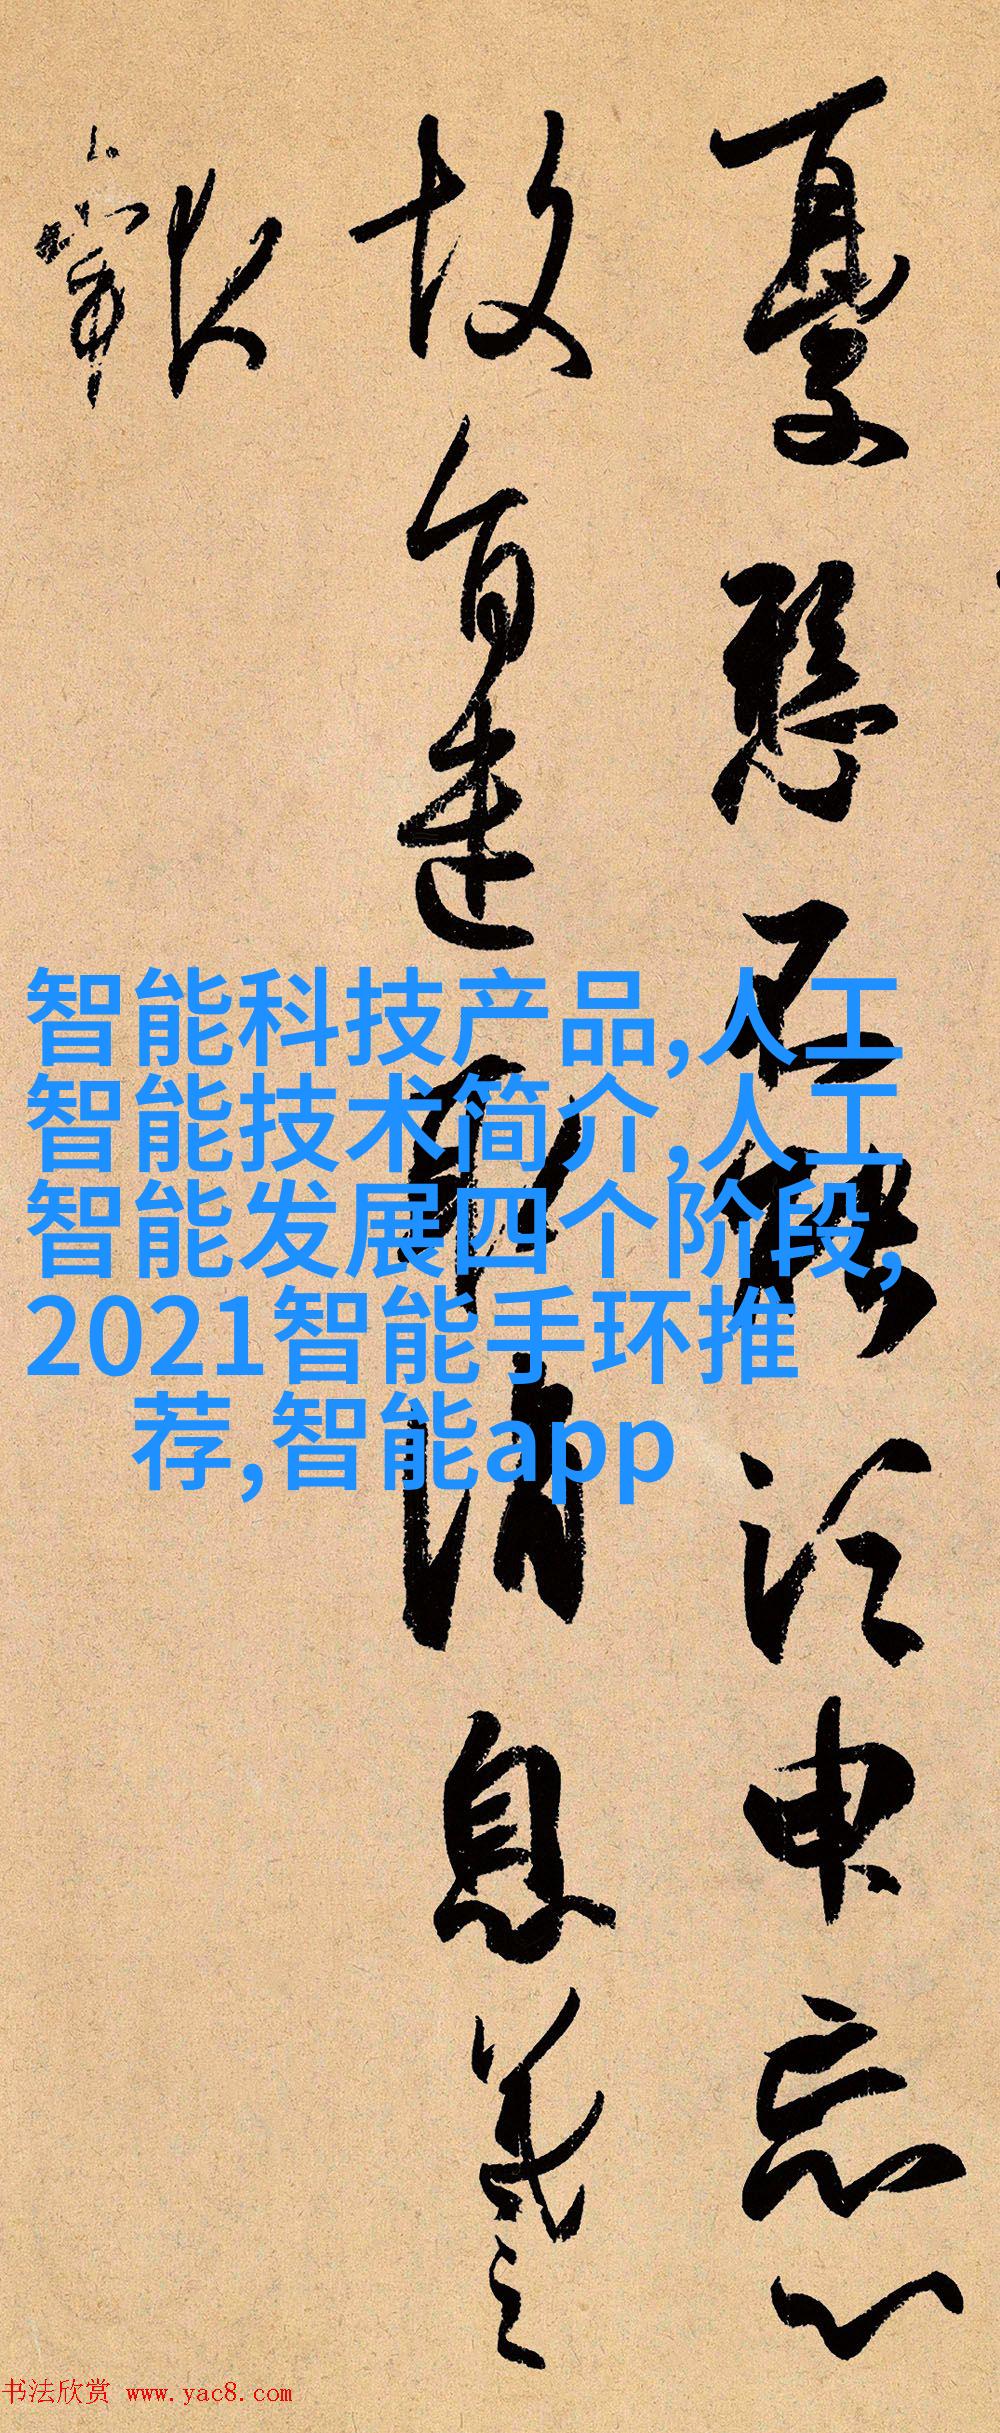 憂懸不能須臾忘心
故旨遣取消息羲之
報
智能科技产品,人工
智能技术简介,人工
智能发展四个阶段,
2021智能手环推
荐,智能app
书法欣赏 www.yac8.com